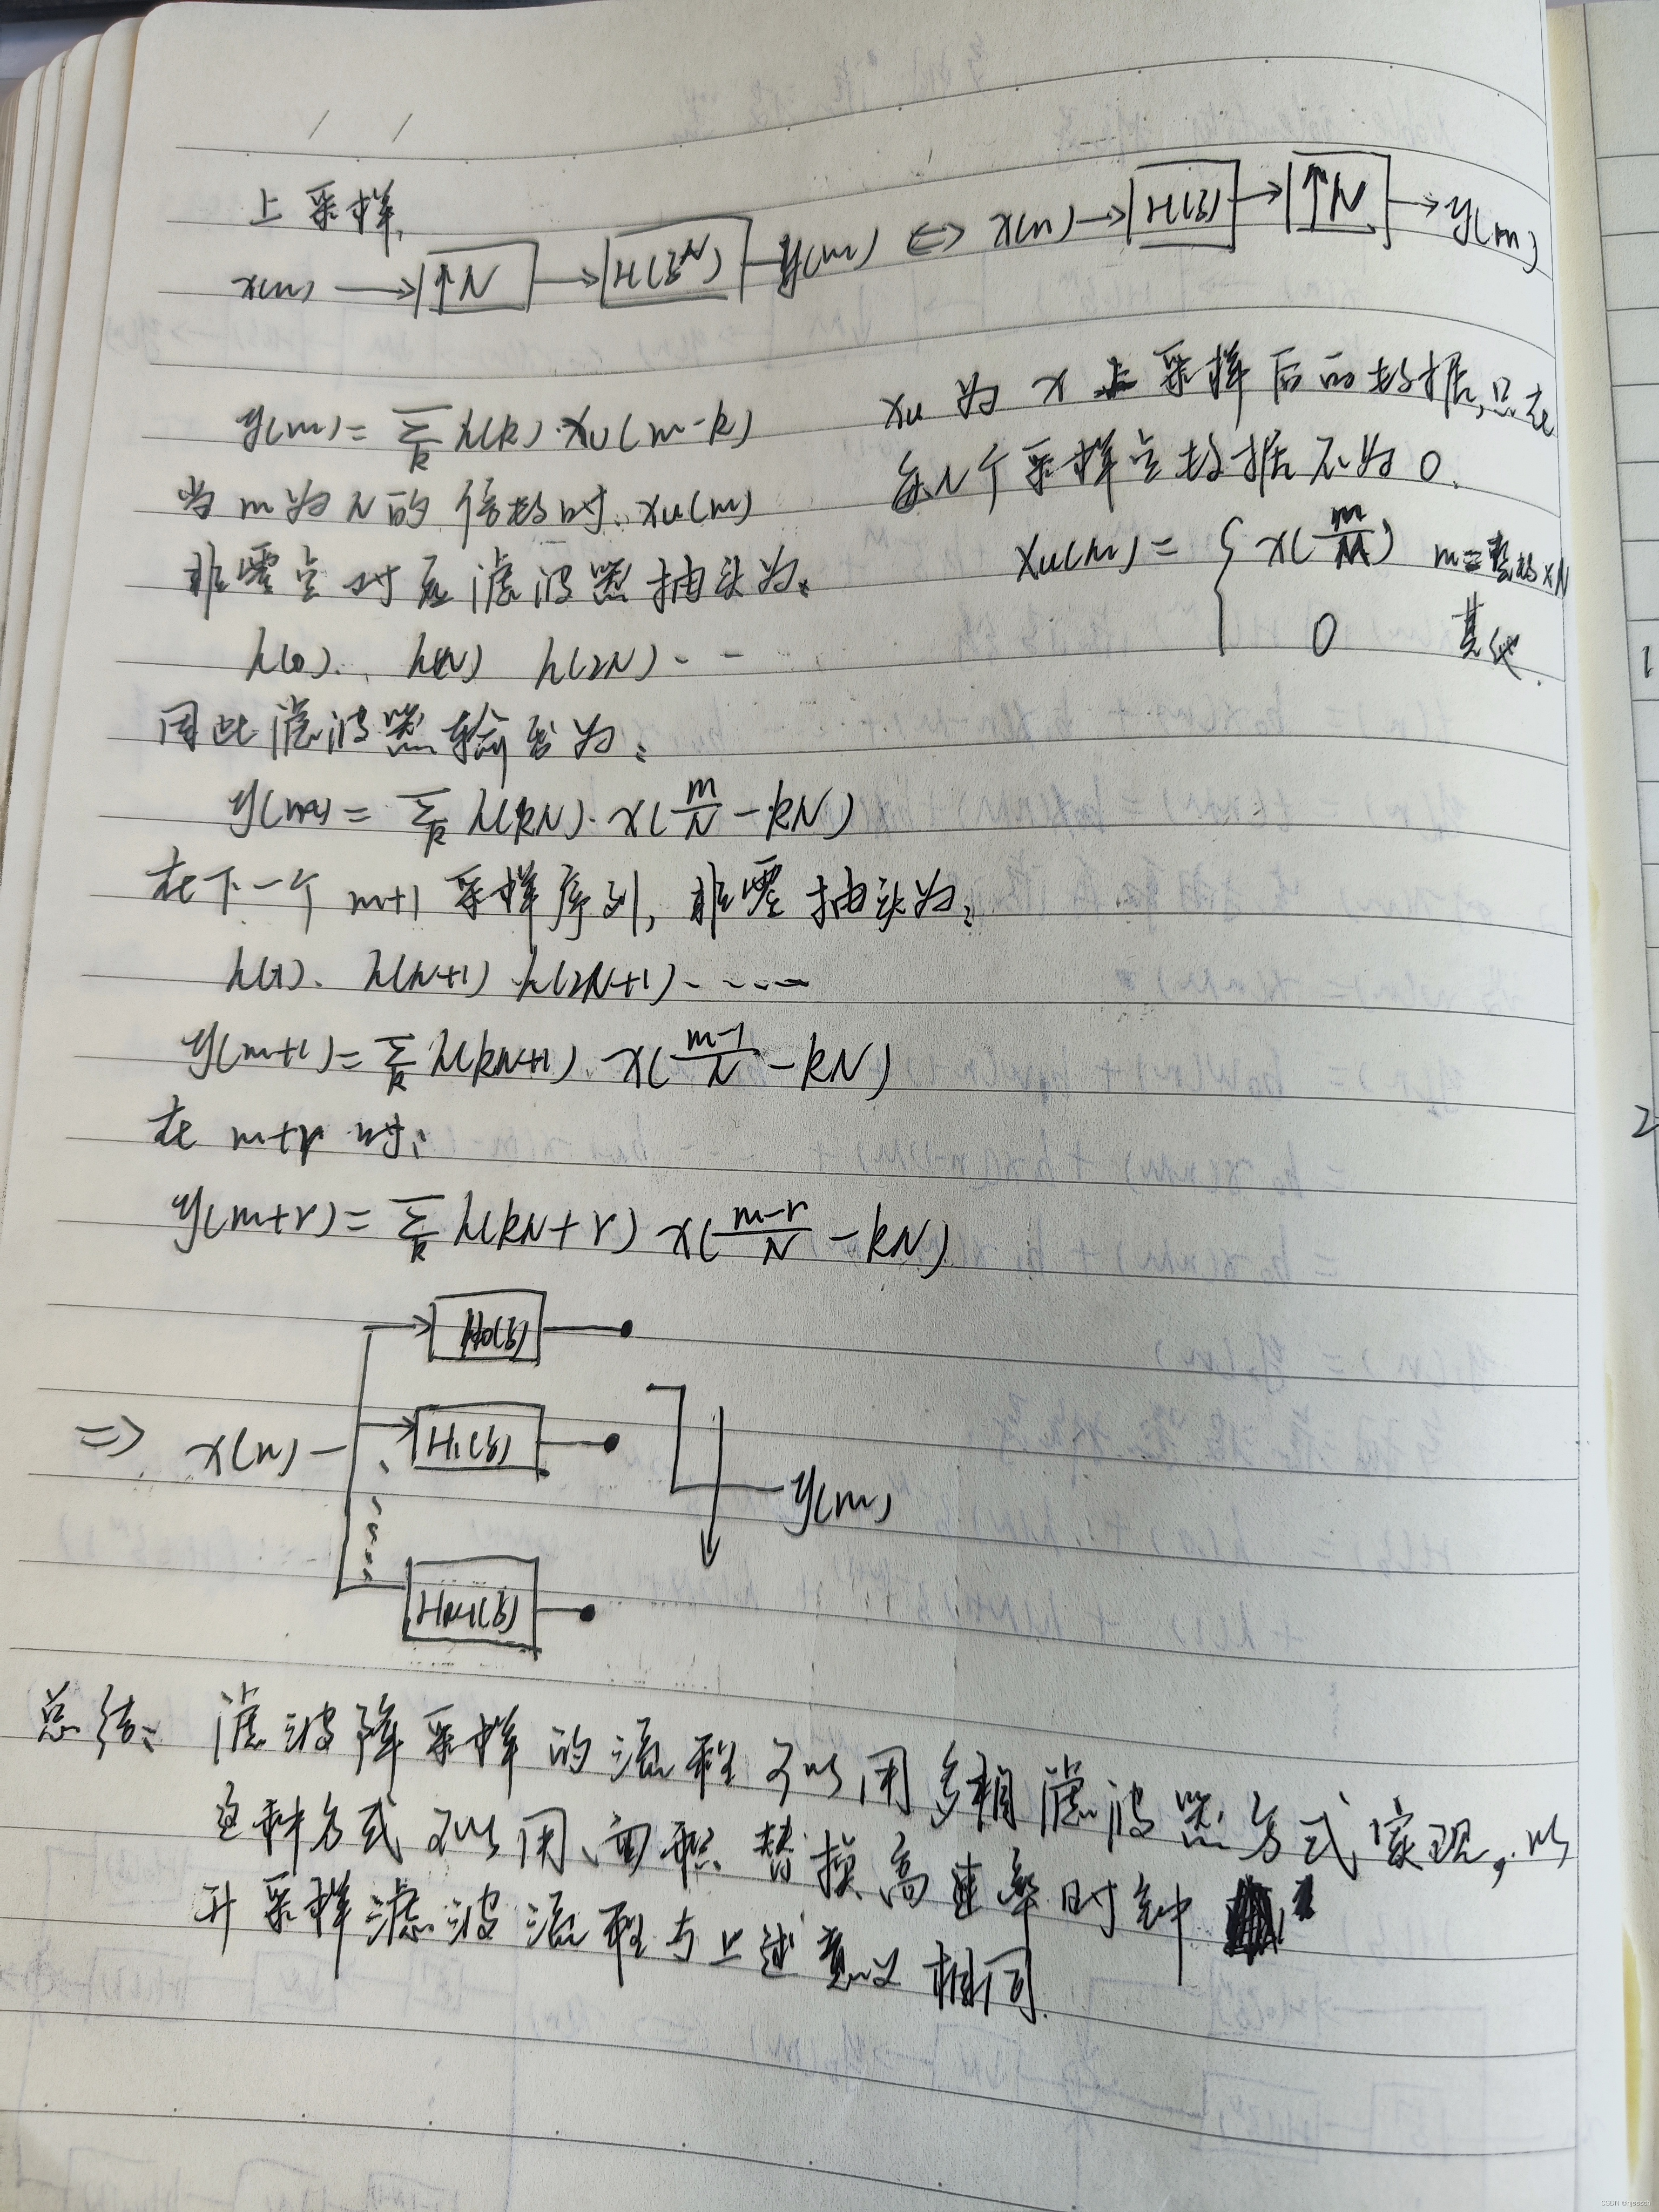 上采样.
x(n) → ↑N → H(z^N) → y(m) ⇔ x(n) → H(z) → ↑N → y(m)
y(m) = Σ_k h(k)·xu(m-k)
xu 为 x 上采样后的数据,只在
每N个采样点数据不为0.
当m为N的倍数时. xu(m)
xu(m) = { x(m/N) m=整数×N
0 其他.
非零点对应滤波器抽头为:
h(0). h(N) h(2N)...
因此滤波器输出为:
y(m) = Σ_k h(kN)·x(m/N - kN)
在下一个 m+1 采样序列, 非零抽头为:
h(1). h(N+1) h(2N+1).....
y(m+1) = Σ_k h(kN+1)·x((m-1)/N - kN)
在 m+r 时:
y(m+r) = Σ_k h(kN+r) x((m-r)/N - kN)
H0(z)
⇒ x(n) H1(z) y(m)
HN-1(z)
总结: 滤波降采样的流程可以用多相滤波器方式实现,以
这种方式可以用面积替换高速率时钟
升采样滤波流程与上述意义相同.
1
2
CSDN